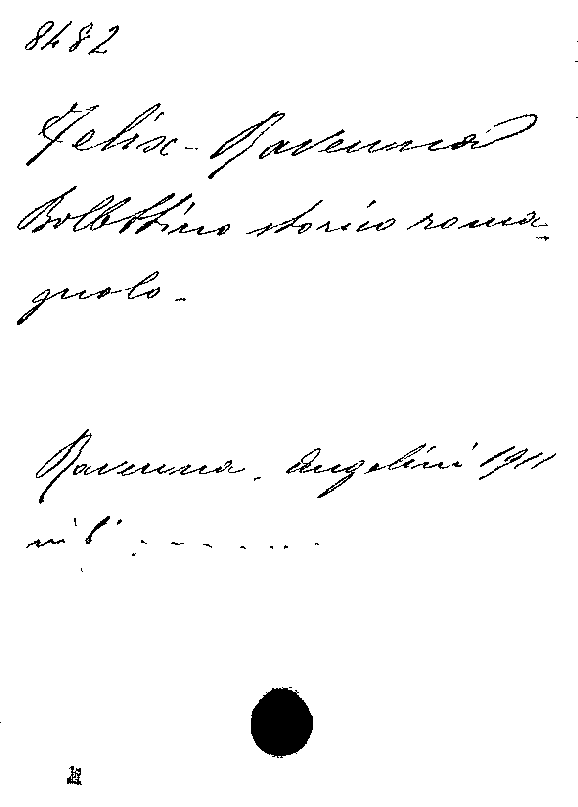 8482
Felix - Ravenna
Bollettino storico roma-
gnolo -
Ravenna. Angelini 1911
in 8°. - - - . . .